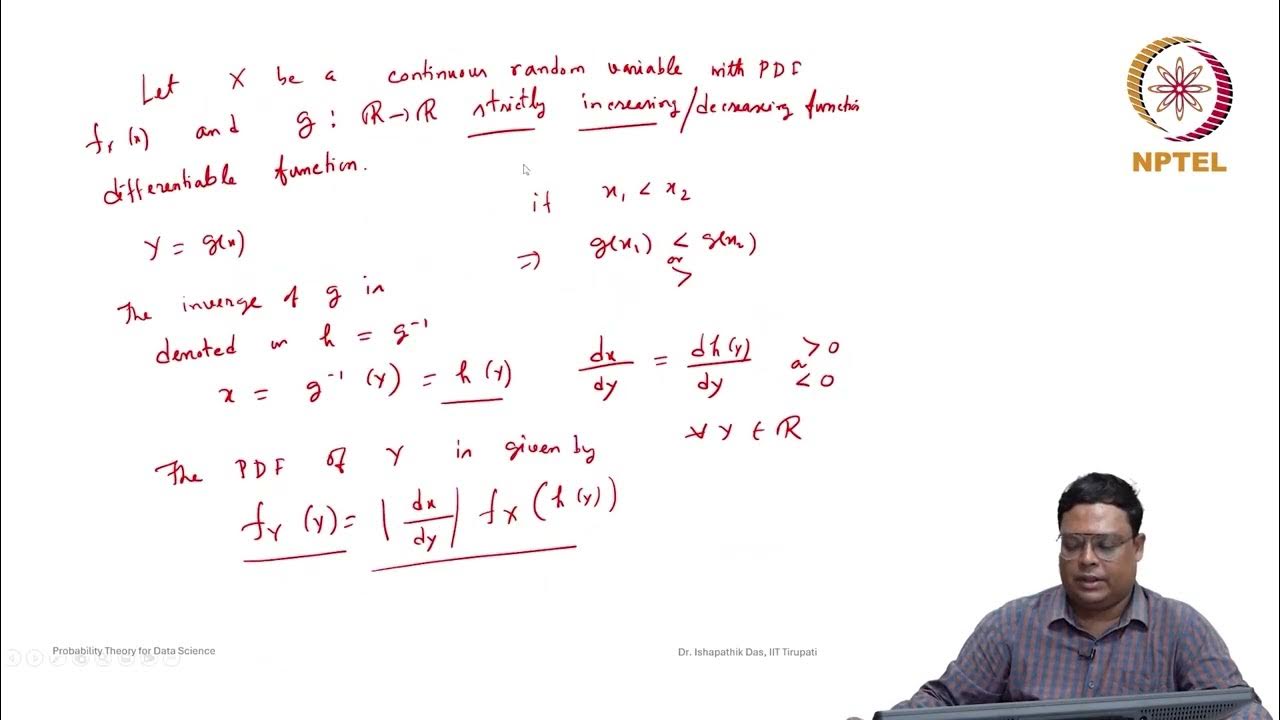 Let X be a continuous random variable with PDF
f_X(x) and g : ℝ→ℝ strictly increasing/decreasing function
differentiable function.
NPTEL
if x₁ < x₂
Y = g(x)
⇒ g(x₁) < g(x₂)
or
>
The inverse of g is
denoted as h = g⁻¹
x = g⁻¹(y) = h(y)
dx/dy = dh(y)/dy > 0
or
< 0
∀ y ∈ ℝ
The PDF of Y is given by
f_Y(y) = |dx/dy| f_X(h(y))
Probability Theory for Data Science
Dr. Ishapathik Das, IIT Tirupati